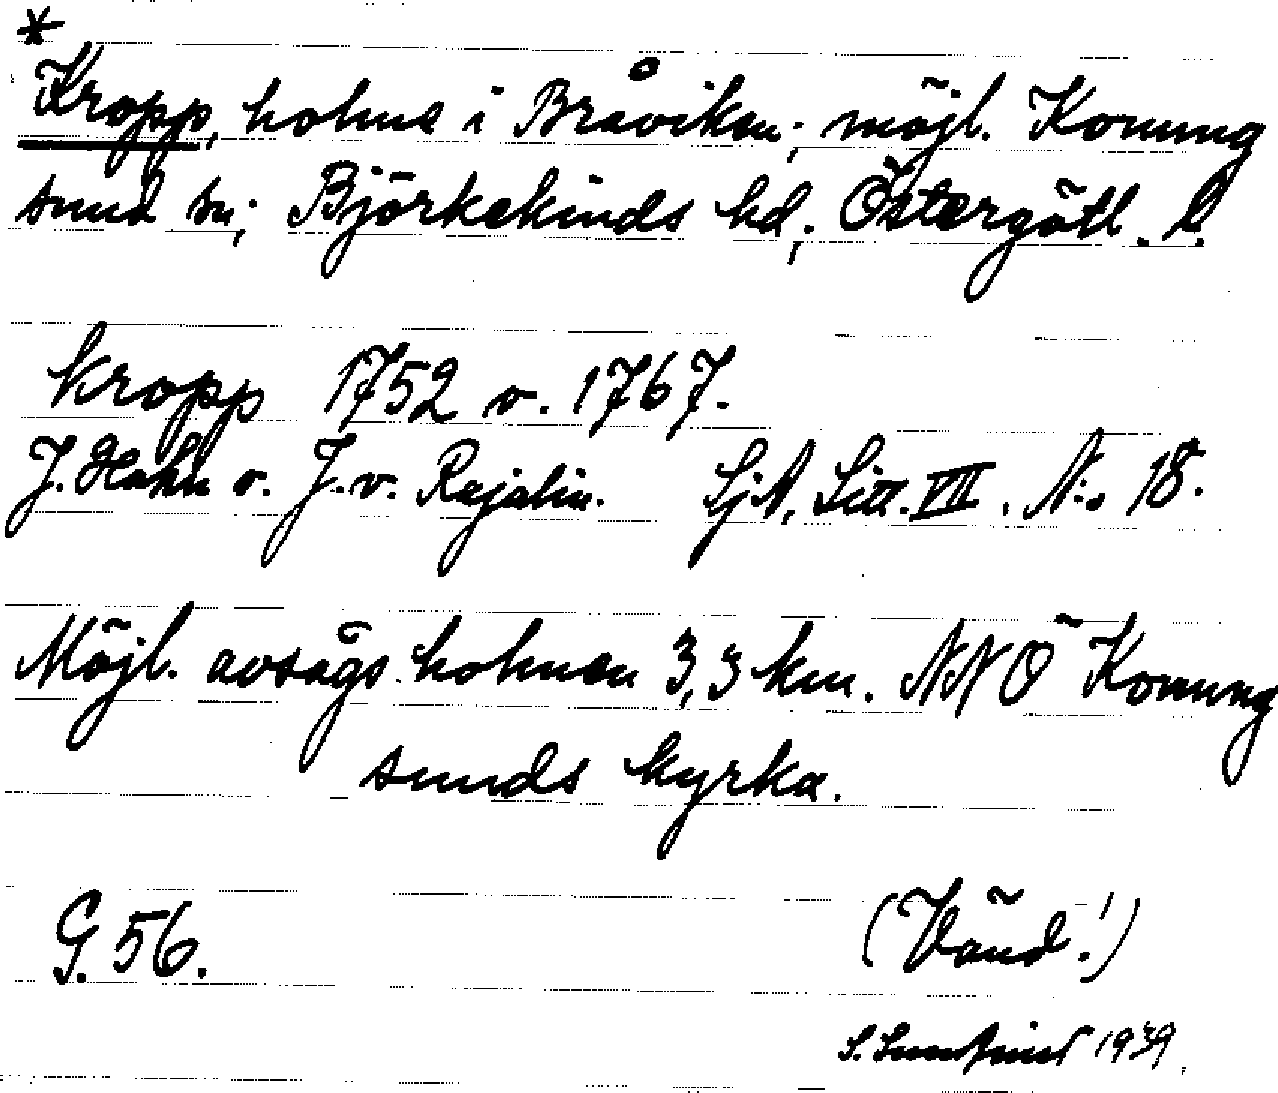 *
Kropp, holme i Bråviken; möjl. Konung
sund sn; Björkekinds hd; Östergötl. l.
kropp 1752 o. 1767.
J. Hahn o. J. v. Rajalin. SjA, Litt. VII. N:o 18.
Möjl. avsågs holmen 3,3 km. NNÖ Konung
sunds kyrka.
G. 56.
(Vänd!)
S. 1939